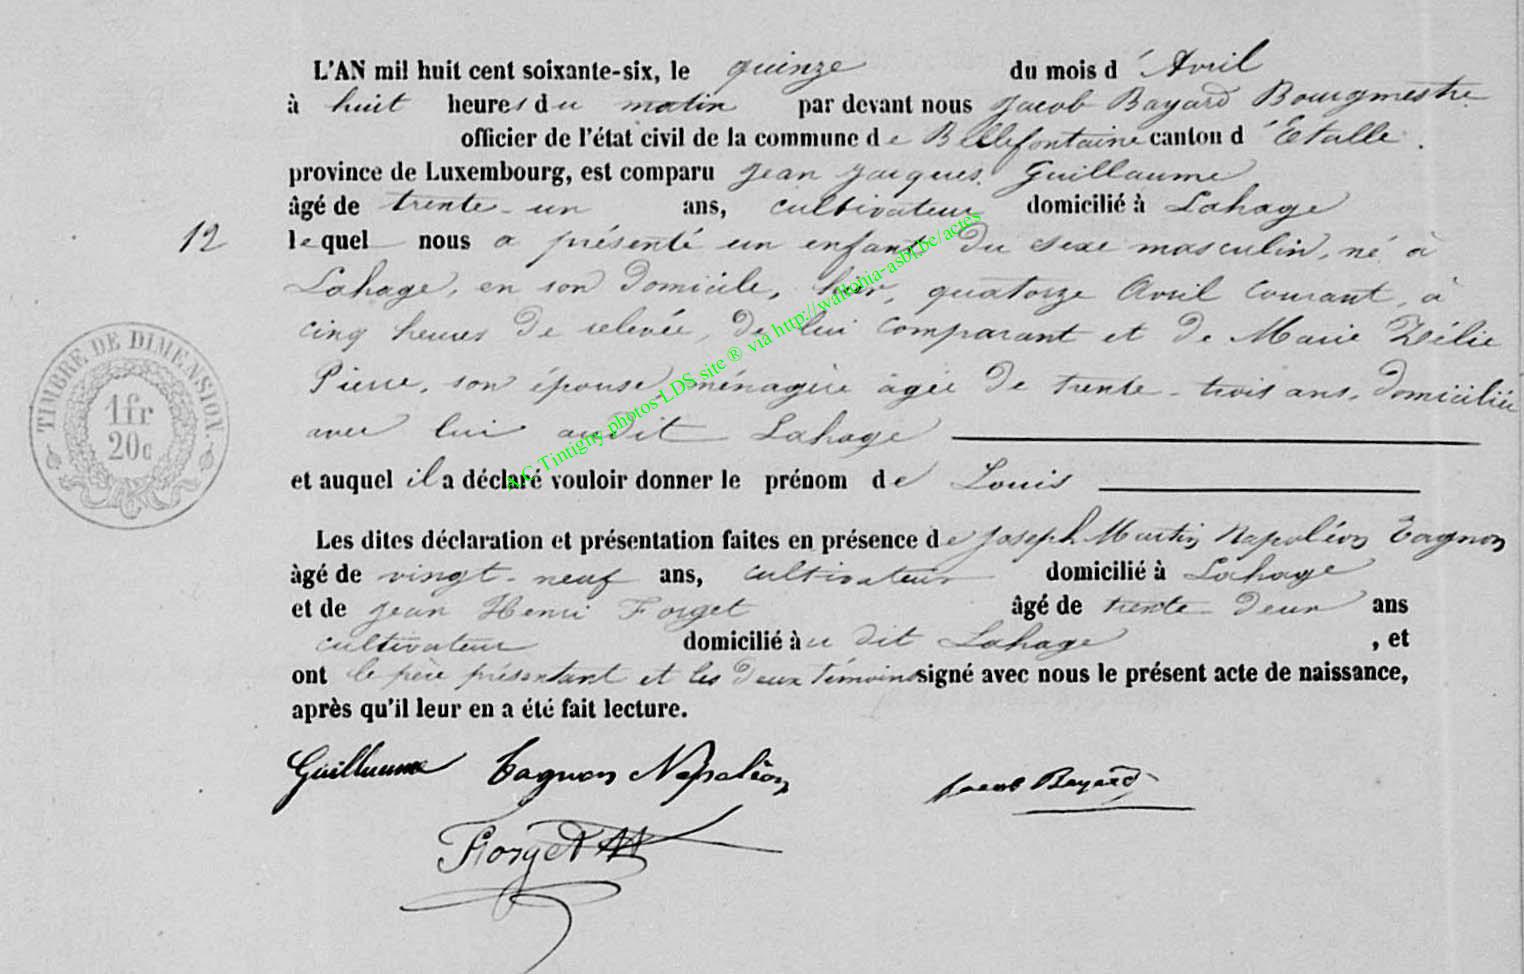 L'AN mil huit cent soixante-six, le quinze du mois d'Avril
à huit heures du matin par devant nous Jacob Bayard Bourgmestre
officier de l'état civil de la commune de Bellefontaine canton d'Etalle.
province de Luxembourg, est comparu Jean Jacques Guillaume
âgé de trente-un ans, cultivateur domicilié à Lahage
12 lequel nous a présenté un enfant du sexe masculin, né à
Lahage, en son domicile, hier, quatorze Avril courant, à
cinq heures de relevée, de lui comparant et de Marie Zélie
Pierre, son épouse, ménagère âgée de trente-trois ans, domiciliée
avec lui audit Lahage
et auquel il a déclaré vouloir donner le prénom de Louis
Les dites déclaration et présentation faites en présence de Joseph Martin Napoléon Tagnon
âgé de vingt-neuf ans, cultivateur domicilié à Lahage
et de Jean Henri Forget âgé de trente-deux ans
cultivateur domicilié au dit Lahage, et
ont le père présentant et les deux témoins signé avec nous le présent acte de naissance,
après qu'il leur en a été fait lecture.
Guillaume Tagnon Napoléon Jacob Bayard
Forget
TIMBRE DE DIMENSION.
1fr
20c
A.C Tintigny photos LDS site ® via http://wallonia-asbl.be/actes